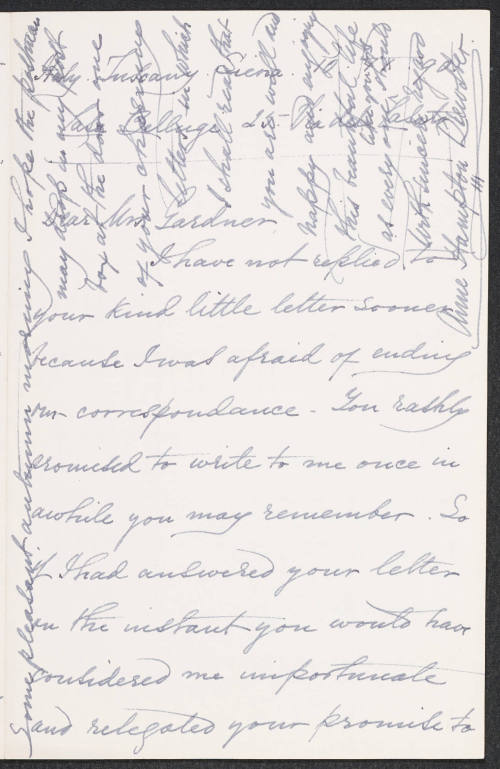 Italy Tuscany. Siena.
Dear Mrs. Gardner
I have not replied to
your kind little letter sooner
because I was afraid of ending
our correspondance - You rashly
promised to write to me once in
awhile you may remember. So
if I had answered your letter
on the instant you would have
considered me importunate
and relegated your promise to
Some pleasant autumn morning I hope the postman
may drop in my
box at the door one
of your
letters in which
I shall read that
you are well and
happy and enjoying
this beautiful life
as every one should
with sincere regard
Anne Hampton Brewster